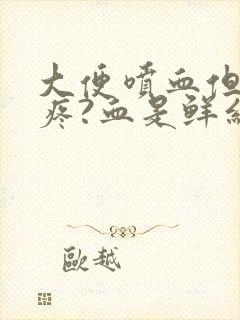 大便喷血但
疼?血是鲜红
歐越